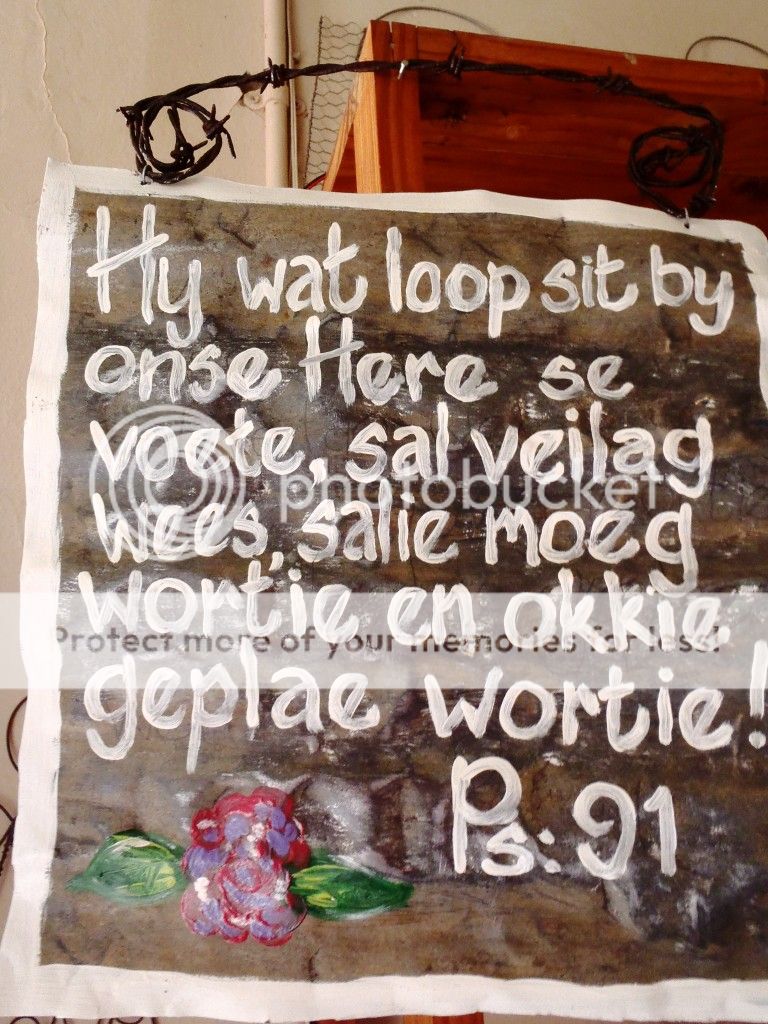 Hy wat loop sit by
onse Here se
voete, sal veilag
wees, salie moeg
wortie en okkie
geplae wortie!
Ps: 91
photobucket
Protect more of your memories for less!